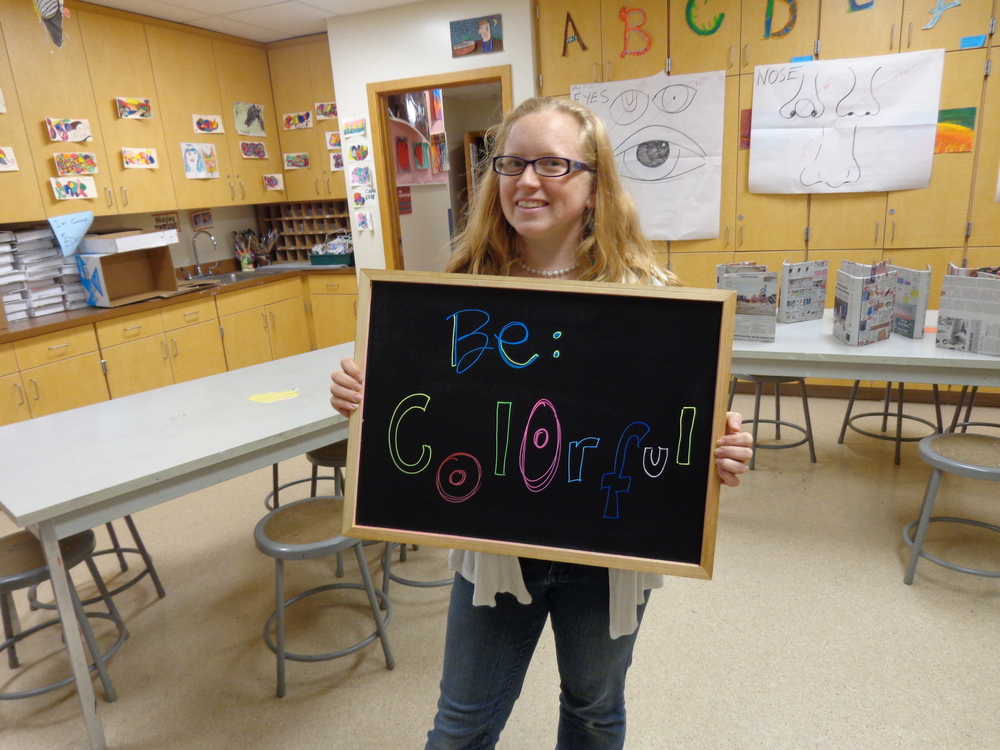 A B C D E F
EYES
NOSE
Be:
Colorful